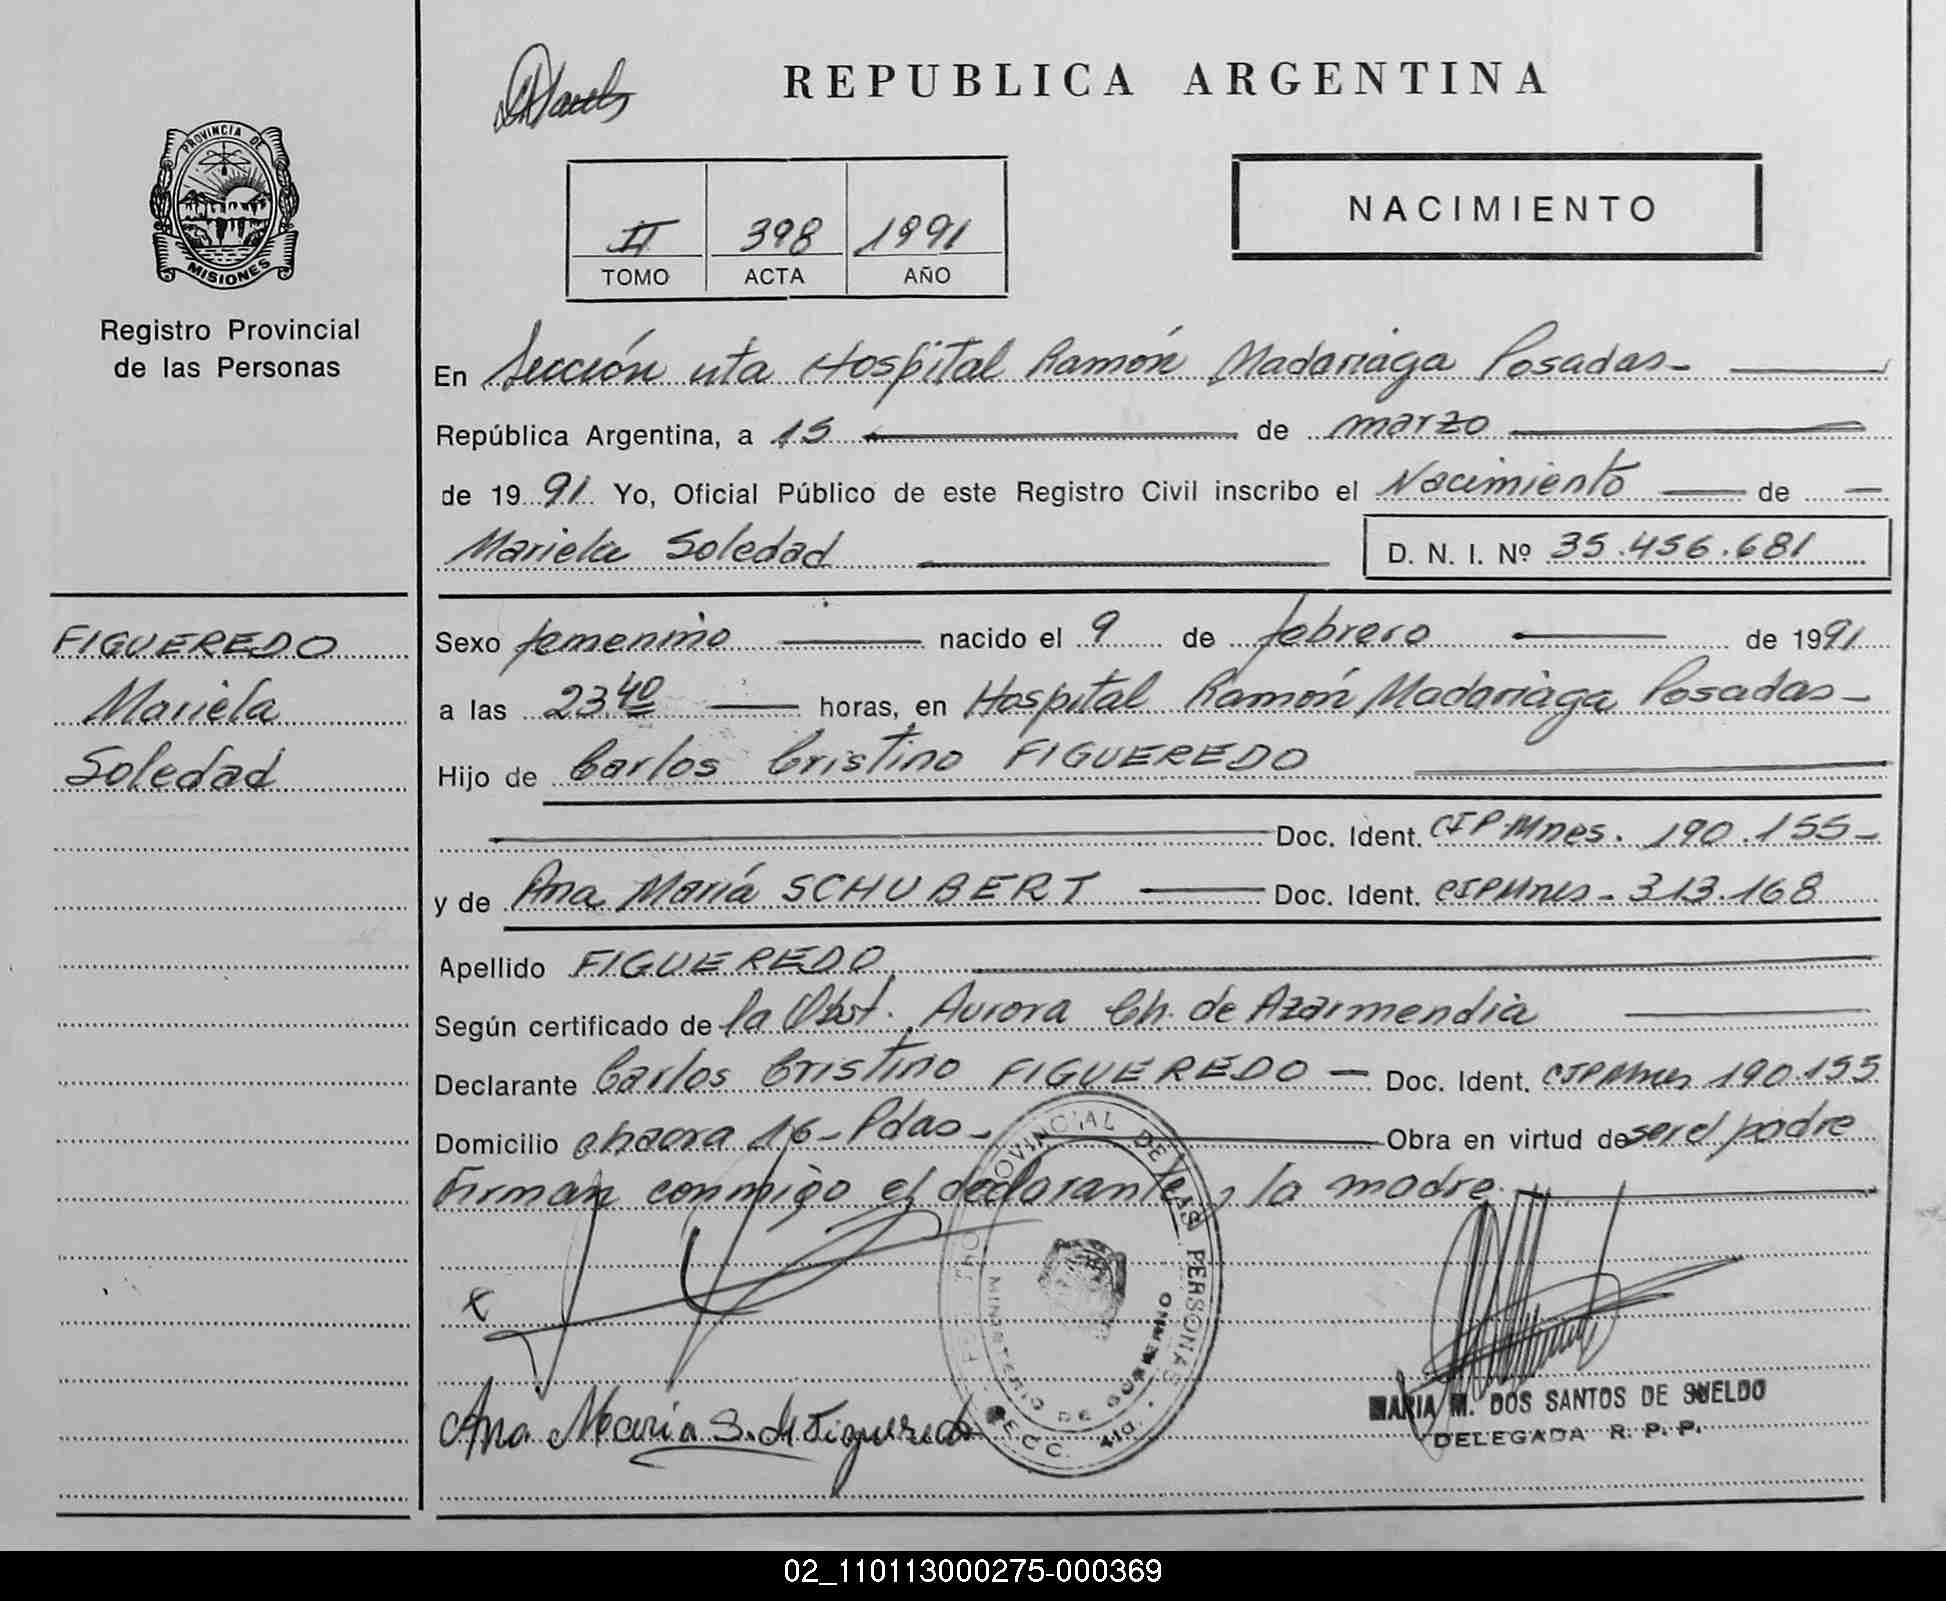 REPUBLICA ARGENTINA
PROVINCIA DE
MISIONES
Registro Provincial
de las Personas
II 398 1991
TOMO ACTA AÑO
NACIMIENTO
En Sección 4ta Hospital Ramón Madariaga Posadas-
República Argentina, a 15 de marzo
de 1991 Yo, Oficial Público de este Registro Civil inscribo el Nacimiento de
Mariela Soledad D. N. I. Nº 35.456.681
FIGUEREDO
Mariela
Soledad
Sexo femenino nacido el 9 de febrero de 1991
a las 23,40 horas, en Hospital Ramón Madariaga Posadas-
Hijo de Carlos Cristino FIGUEREDO
Doc. Ident. CIP.Mnes. 190.155-
y de Ana María SCHUBERT Doc. Ident. CIPMnes- 313.168
Apellido FIGUEREDO
Según certificado de la Obst. Aurora Ch. de Azarmendia
Declarante Carlos Cristino FIGUEREDO - Doc. Ident. CIPMnes 190.155
Domicilio chacra 16- Pdas- Obra en virtud de ser el padre
Firman conmigo el declarante y la madre.
PROVINCIAL DE LAS PERSONAS
MINISTERIO DE GOBIERNO
SECC. 4ta.
Ana María S. de Figueredo
MARIA M. DOS SANTOS DE SUELDO
DELEGADA R. P. P.
02_110113000275-000369